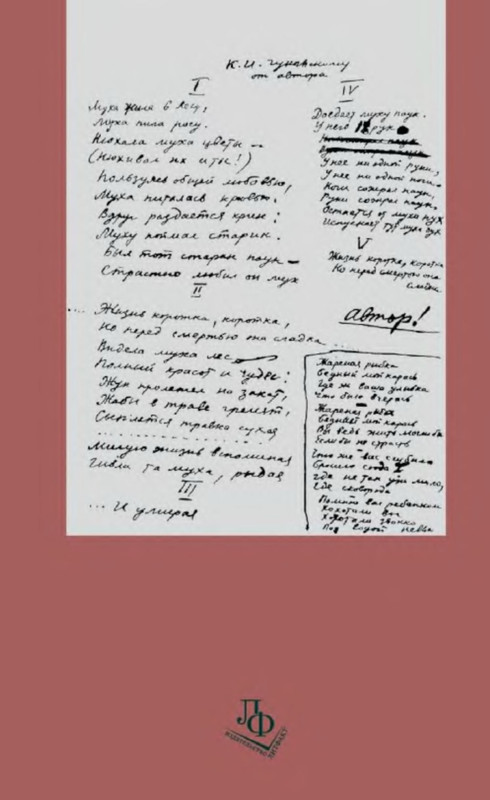 К. И. Чуковскому
от автора
I
Муха жила в лесу,
Муха пила росу.
Нюхала муха цветы —
(Нюхивал их и ты!)
Пользуясь общей любовью,
Муха питалась кровью.
Вдруг раздается крик:
Муху поймал старик.
Был тот старик паук —
Страстно любил он мух
II
... Жизнь коротка, коротка,
Но перед смертью она сладка ...
Видела муха лес
Полный красот и чудес:
Жук пролетел на закат,
Жабы в траве гремят,
Сыплется травка сухая
Милую жизнь вспоминая
Гибла та муха, рыдая
III
... И умирая
IV
Доедает муху паук.
У него рук
У нее ни одной руки,
У нее ни одной ноги.
Ноги сожрал паук,
Руки сожрал паук,
Остается от мухи пух
Испускает тут муха дух
V
Жизнь коротка, коротка
Но перед смертью она
сладка
Автор!
Жареная рыбка
Бедный мой карась
Где ж ваша улыбка
Что была вчерась
Жареная рыба
Бедный мой карась
Вы ведь жить могли бы
Если бы не страсть
Что же вас сгубило
Бросило сюда
Где не так уж мило,
Где сковорода
Помню вас ребенком
Хохотали вы
Хохотали звонко
Под водой Невы
ЛФ
ИЗДАТЕЛЬСТВО ЛИТФАКТ